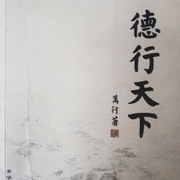 德行天下
萬行著